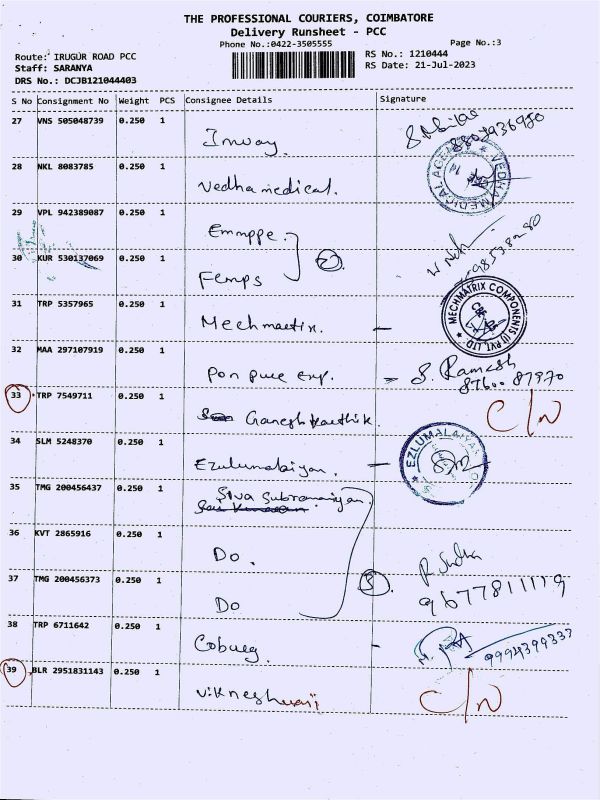 THE PROFESSIONAL COURIERS, COIMBATORE
Delivery Runsheet - PCC
Phone No.:0422-3505555 Page No.:3
Route: IRUGUR ROAD PCC RS No.: 1210444
Staff: SARANYA RS Date: 21-Jul-2023
DRS No.: DCJB121044403
S No Consignment No Weight PCS Consignee Details Signature
27 VNS 505048739 0.250 1 8807936980
28 NKL 8083785 0.250 1 Vedha medical. VEDHA MEDICAL AGE
29 VPL 942389087 0.250 1 Emmppe.
30 KUR 530137069 0.250 1 Femps 2
31 TRP 5357965 0.250 1 Mechmaetix. MECHMATRIX COMPONENTS (I) PVT. LTD
32 MAA 297107919 0.250 1 Pon pure exp. S. Ramesh
87600 87970
33 TRP 7549711 0.250 1 Ganesh Kaethik. C/N
34 SLM 5248370 0.250 1 Ezulumalaiyan. EZLUMALAIYAN
35 TMG 200456437 0.250 1 Siva Subramaniyan.
36 KVT 2865916 0.250 1 Do. R Sudha
37 TMG 200456373 0.250 1 Do 3 9677811119
38 TRP 6711642 0.250 1 Cobueg. 9994399333
39 BLR 2951831143 0.250 1 C/N